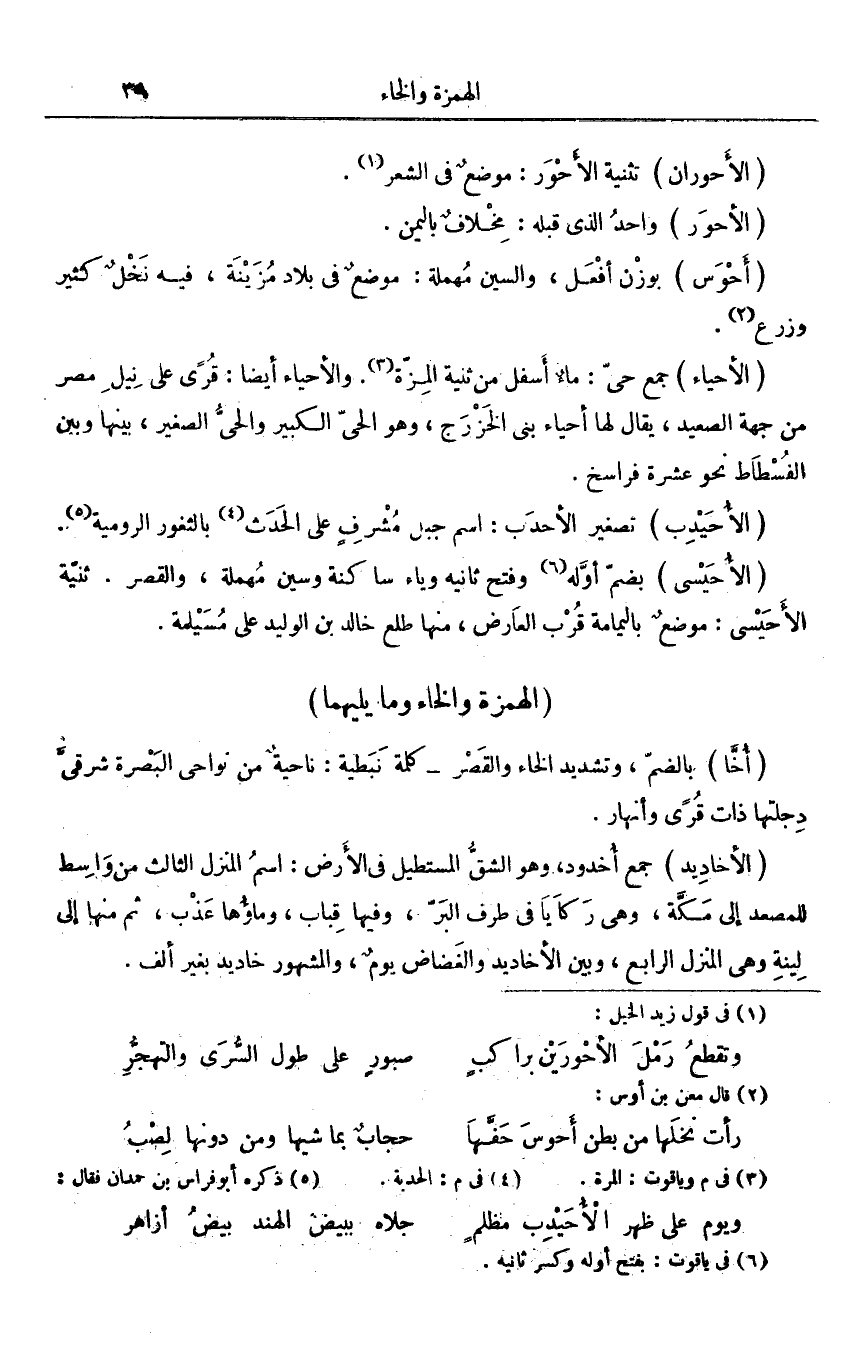 الهمزة والخاء ٣٩
( الأَحوران ) تثنية الأَحْوَر : موضعٌ فى الشعر(١) .
( الأحوَر ) واحدُ الذى قبله : مِخْلافٌ باليمن .
( أَحْوَس ) بوزْن أفْعَل ، والسين مُهملة : موضعٌ فى بلاد مُزَيْنَة ، فيه نَخْلٌ كثير
وزرع(٢) .
( الأحياء ) جمع حىّ : ماءٌ أَسفل من ثنية المِزّة(٣). والأحياء أيضا : قُرًى على نِيلِ مصر
من جهة الصعيد ، يقال لها أحياء بنى الخَزْرَج ، وهو الحىّ الكبير والحىُّ الصغير ، بينها وبين
الفُسْطَاط نحو عشرة فراسخ .
( الأُحَيْدِب ) تصغير الأحدَب : اسم جبل مُشْرفٍ على الحَدَث(٤) بالثغور الرومية(٥).
( الأُحَيْسى ) بضمّ أوَّله(٦) وفتح ثانيه وياء ساكنة وسين مُهملة ، والقصر . ثنيّة
الأَحَيْسى : موضعٌ باليمامة قُرْب العَارض ، منها طلع خالد بن الوليد على مُسَيْلمة .
(الهمزة والخاء وما يليهما)
( أُخَّا ) بالضمّ ، وتشديد الخاء والقَصْر – كلمة نَبَطية : ناحيةٌ من نواحى البَصْرة شرقىَّ
دِجلتها ذات قُرًى وأنهار .
( الأخادِيد ) جمع أُخدود، وهو الشقُّ المستطيل فى الأَرض : اسمُ المنزل الثالث من وَاسِط
للمصعد إلى مَكَّة ، وهى رَكَايَا فى طرف البَرّ ، وفيها قِباب ، وماؤُها عَذْب ، ثم منها إلى
لِينةِ وهى المنزل الرابع ، وبين الأخاديد والغَضاض يومٌ ، والمشهور خاديد بغير ألف .
(١) فى قول زيد الخيل :
وتقطعُ رَمْلَ الأحْورَيْن براكبٍ صبورٍ على طول السُّرَى والتهجُّرِ
(٢) قال معن بن أوس :
رأت نخلَها من بطن أَحوسَ حَفَّهَا حجابٌ بماشيها ومن دونها لِصْبُ
(٣) فى م وياقوت : المرة . (٤) فى م : الحدبة . (٥) ذكره أبو فراس بن حمدان فقال :
ويوم على ظهر الْأُحَيْدِب مظلمٍ جلاه ببيض الهند بيضُ أزاهر
(٦) فى ياقوت : بفتح أوله وكسر ثانيه .